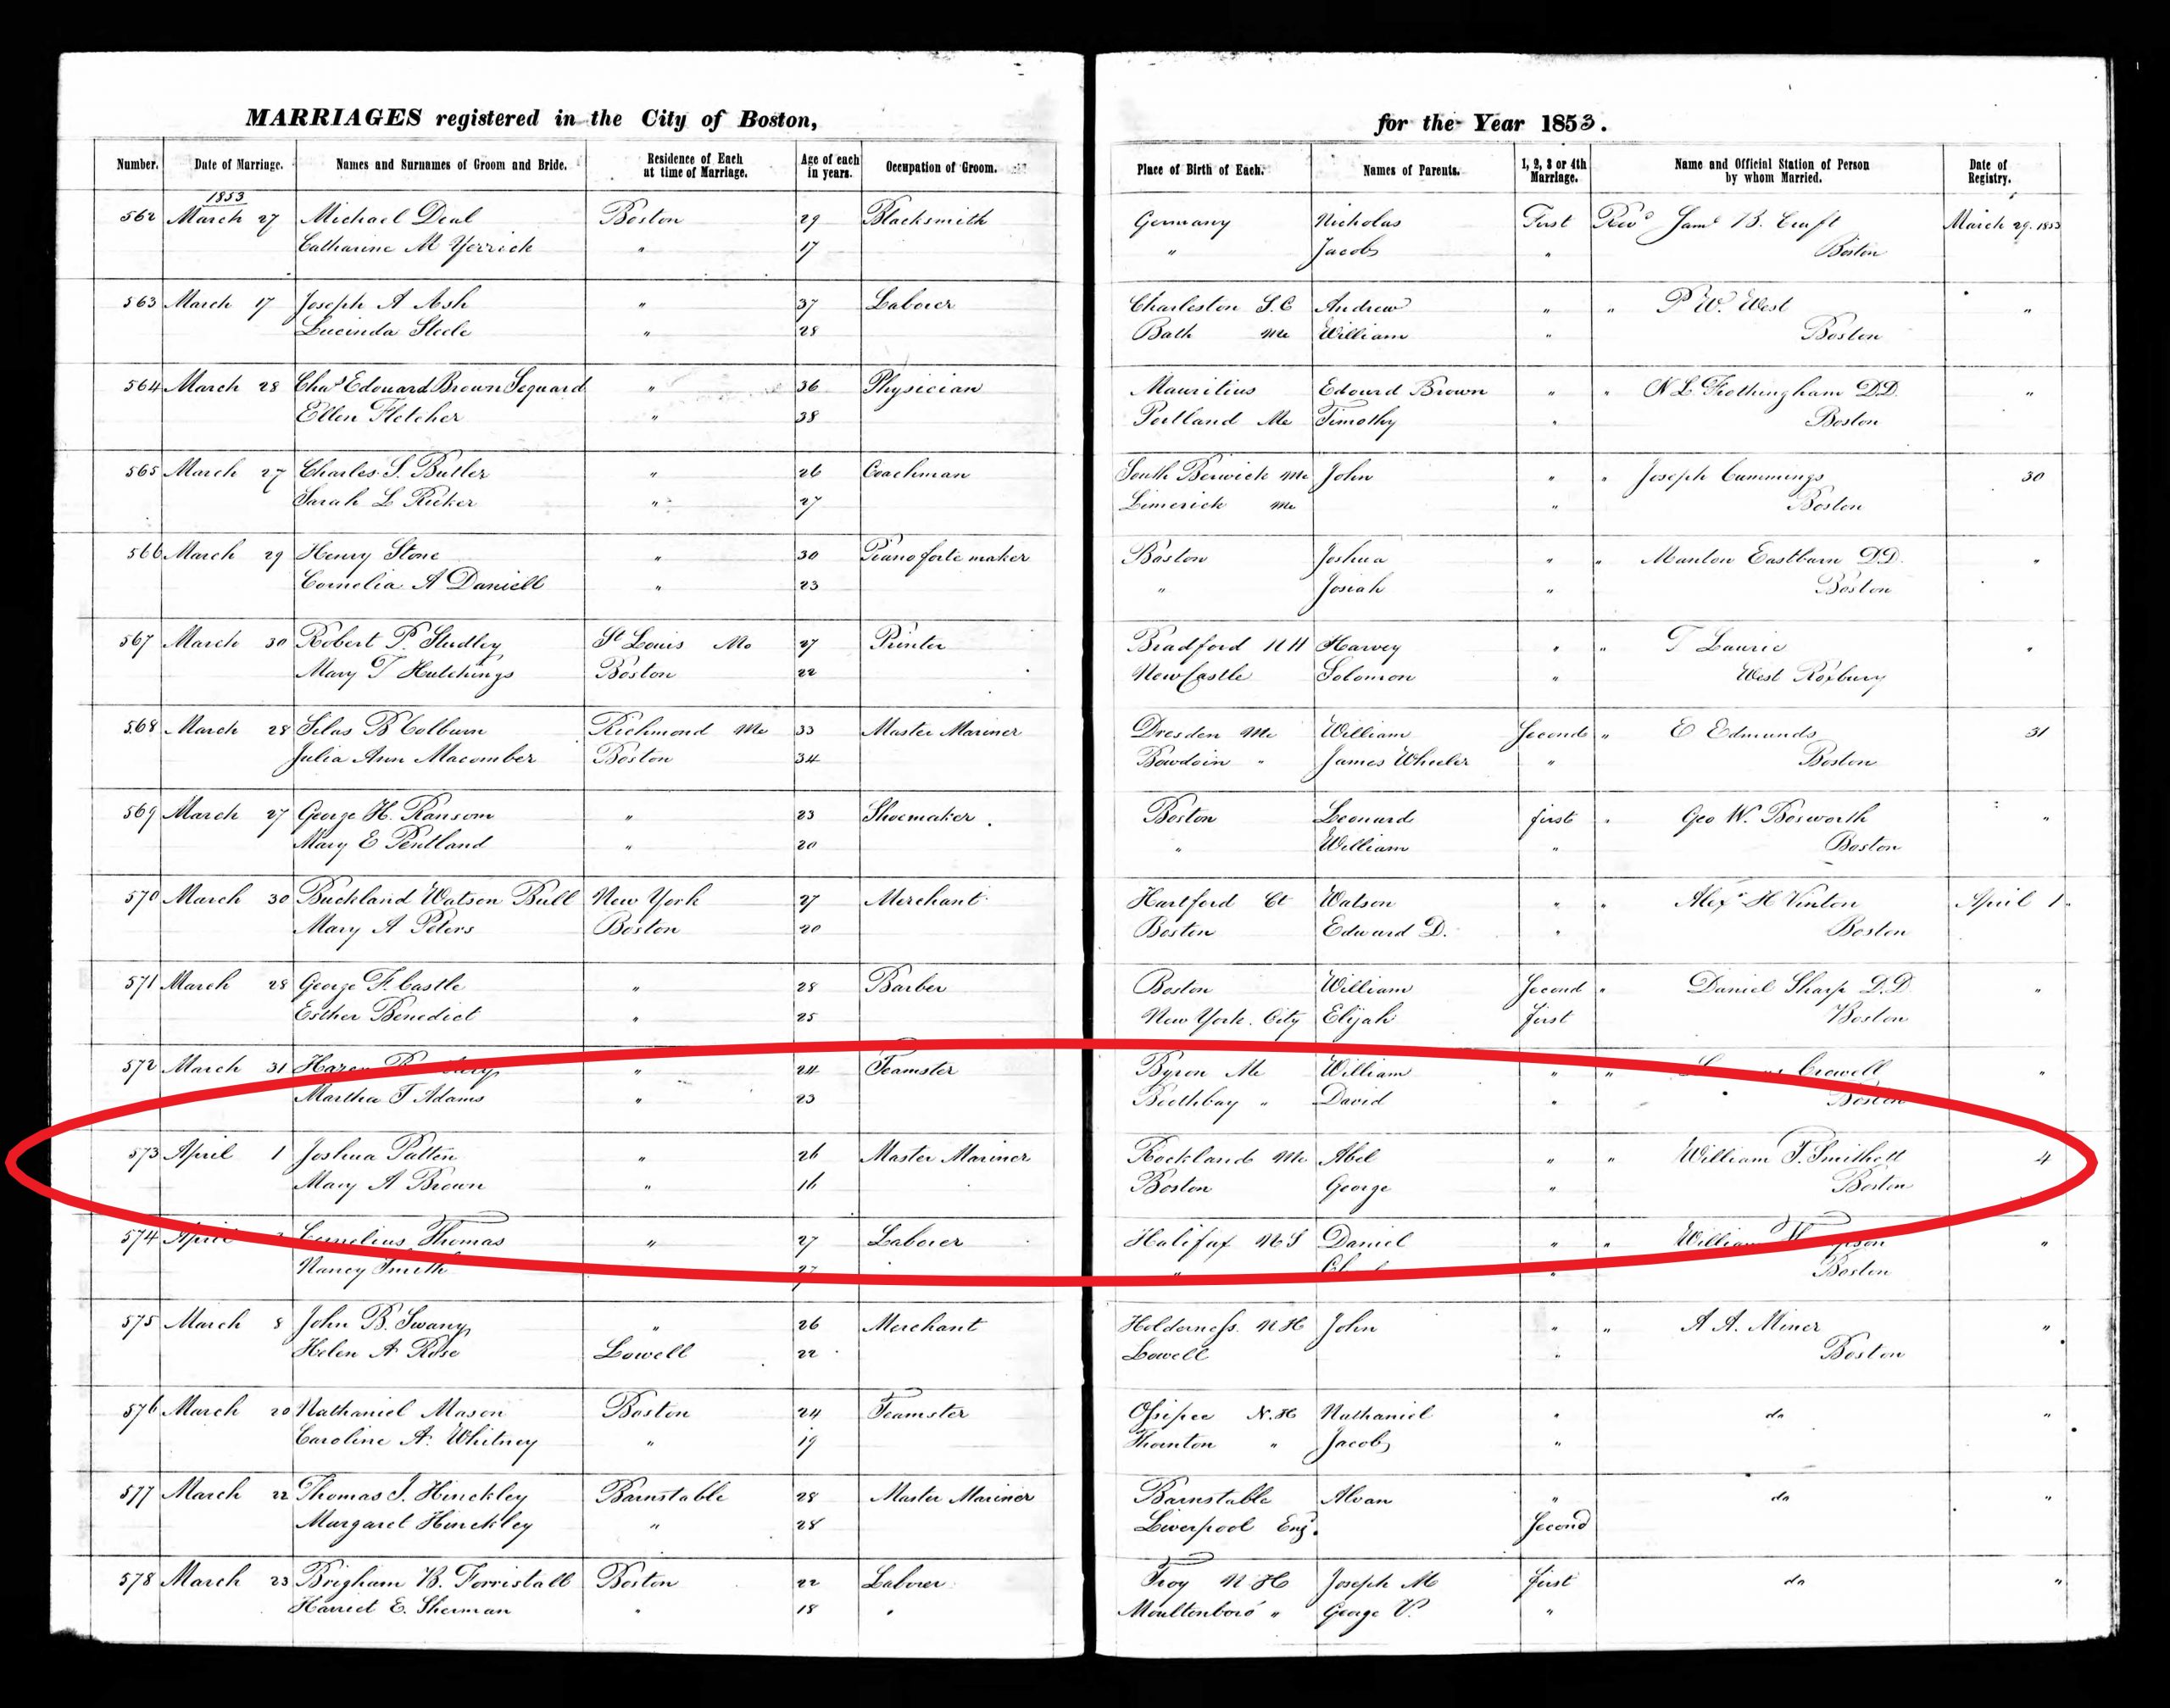 MARRIAGES registered in the City of Boston, for the Year 1853.
Number. Date of Marriage. Names and Surnames of Groom and Bride. Residence of Each at time of Marriage. Age of each in years. Occupation of Groom. Place of Birth of Each. Names of Parents. 1, 2, 3 or 4th Marriage. Name and Official Station of Person by whom Married. Date of Registry.
1853
562 March 27 Michael Deal Boston 29 Blacksmith Germany Nicholas First Revd Saml B. Cruft March 29. 1853
Catharine M Yerrick " 17 " Jacob " Boston
563 March 17 Joseph A Ash " 37 Laborer Charleston S.C Andrew " " P W. West "
Lucinda Steele " 28 Bath Me William " Boston
564 March 28 Chas Edouard Brown Sequard " 36 Physician Mauritius Edourd Brown " " N L Frothingham D.D. "
Ellen Fletcher " 38 Portland Me Timothy " Boston
565 March 27 Charles S. Butler " 26 Coachman South Berwick Me John " " Joseph Cummings 30
Sarah L Ricker " 27 Limerick Me " Boston
566 March 29 Henry Stone " 30 Piano forte maker Boston Joshua " " Manton Eastburn D.D. "
Cornelia A Daniell " 23 " Josiah " Boston
567 March 30 Robert P. Studley St Louis Mo 27 Printer Bradford N H Harvey " " T Laurie "
Mary T Hutchings Boston 22 New Castle Solomon " West Roxbury
568 March 28 Silas B Colburn Richmond Me 33 Master Mariner Dresden Me William Second " E Edmunds 31
Julia Ann Macomber Boston 34 Bowdoin " James Wheeler " Boston
569 March 27 George H. Ransom " 23 Shoemaker. Boston Leonard first " Geo W. Bosworth "
Mary E Pentland " 20 " William " Boston
570 March 30 Buckland Watson Bull New York 27 Merchant Hartford Ct Watson " " Alexr H Vinton April 1
Mary A Peters Boston 20 Boston Edward D. " Boston
571 March 28 George F. Castle " 28 Barber Boston William Second " Daniel Sharp D.D "
Esther Benedict " 25 New York City Elijah first Boston
572 March 31 " 24 Teamster Byron Me William " " Crowell "
Martha T Adams " 23 Boothbay " David " Boston
573 April 1 Joshua Patten " 26 Master Mariner Rockland Me Abel " " William T. Smithett 4
Mary A Brown " 16 Boston George " Boston
574 April Cornelius Thomas " 27 Laborer Halifax N S Daniel " " William "
Nancy Smith 27 " " Boston
575 March 8 John B. Swany " 26 Merchant Holderness N H John " " A A. Miner "
Helen A Rose Lowell 22 Lowell " Boston
576 March 20 Nathaniel Mason Boston 24 Teamster Ossipee N.H Nathaniel " do "
Caroline A. Whitney " 19 Thornton " Jacob "
577 March 22 Thomas J. Hinckley Barnstable 28 Master Mariner Barnstable Alvan " do "
Margaret Hinckley " 28 Liverpool Eng. Second
578 March 23 Brigham B. Forristall Boston 22 Laborer Troy N H Joseph M first do "
Harriet E. Sherman " 18 Moultonboro " George V. "